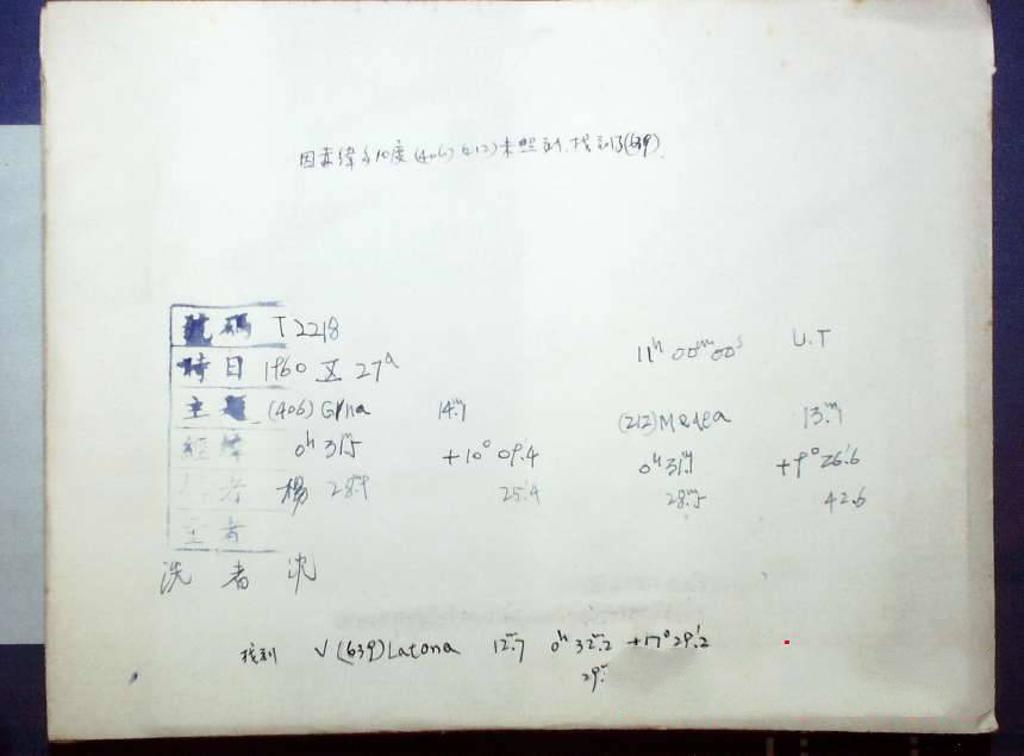 因赤緯 10度 (406) (212) 未照到.找到了(639)
號碼 T2218
時日 1960 27ᵈ 11ʰ 00ᵐ 00ˢ U.T
主題 (406) Erna 14ᵐ.1 (212) Medea 13ᵐ.1
經緯 0ʰ 31ᵐ.5 +10° 09'.4 0ʰ 31ᵐ.1 +9° 26'.6
者 楊 28ᵐ.9 25'.4 28ᵐ.5 42.6
者
洗者 沈
找到 √(639) Latona 12ᵐ.7 0ʰ 32ᵐ.2 +17° 29'.2
29ᵐ.